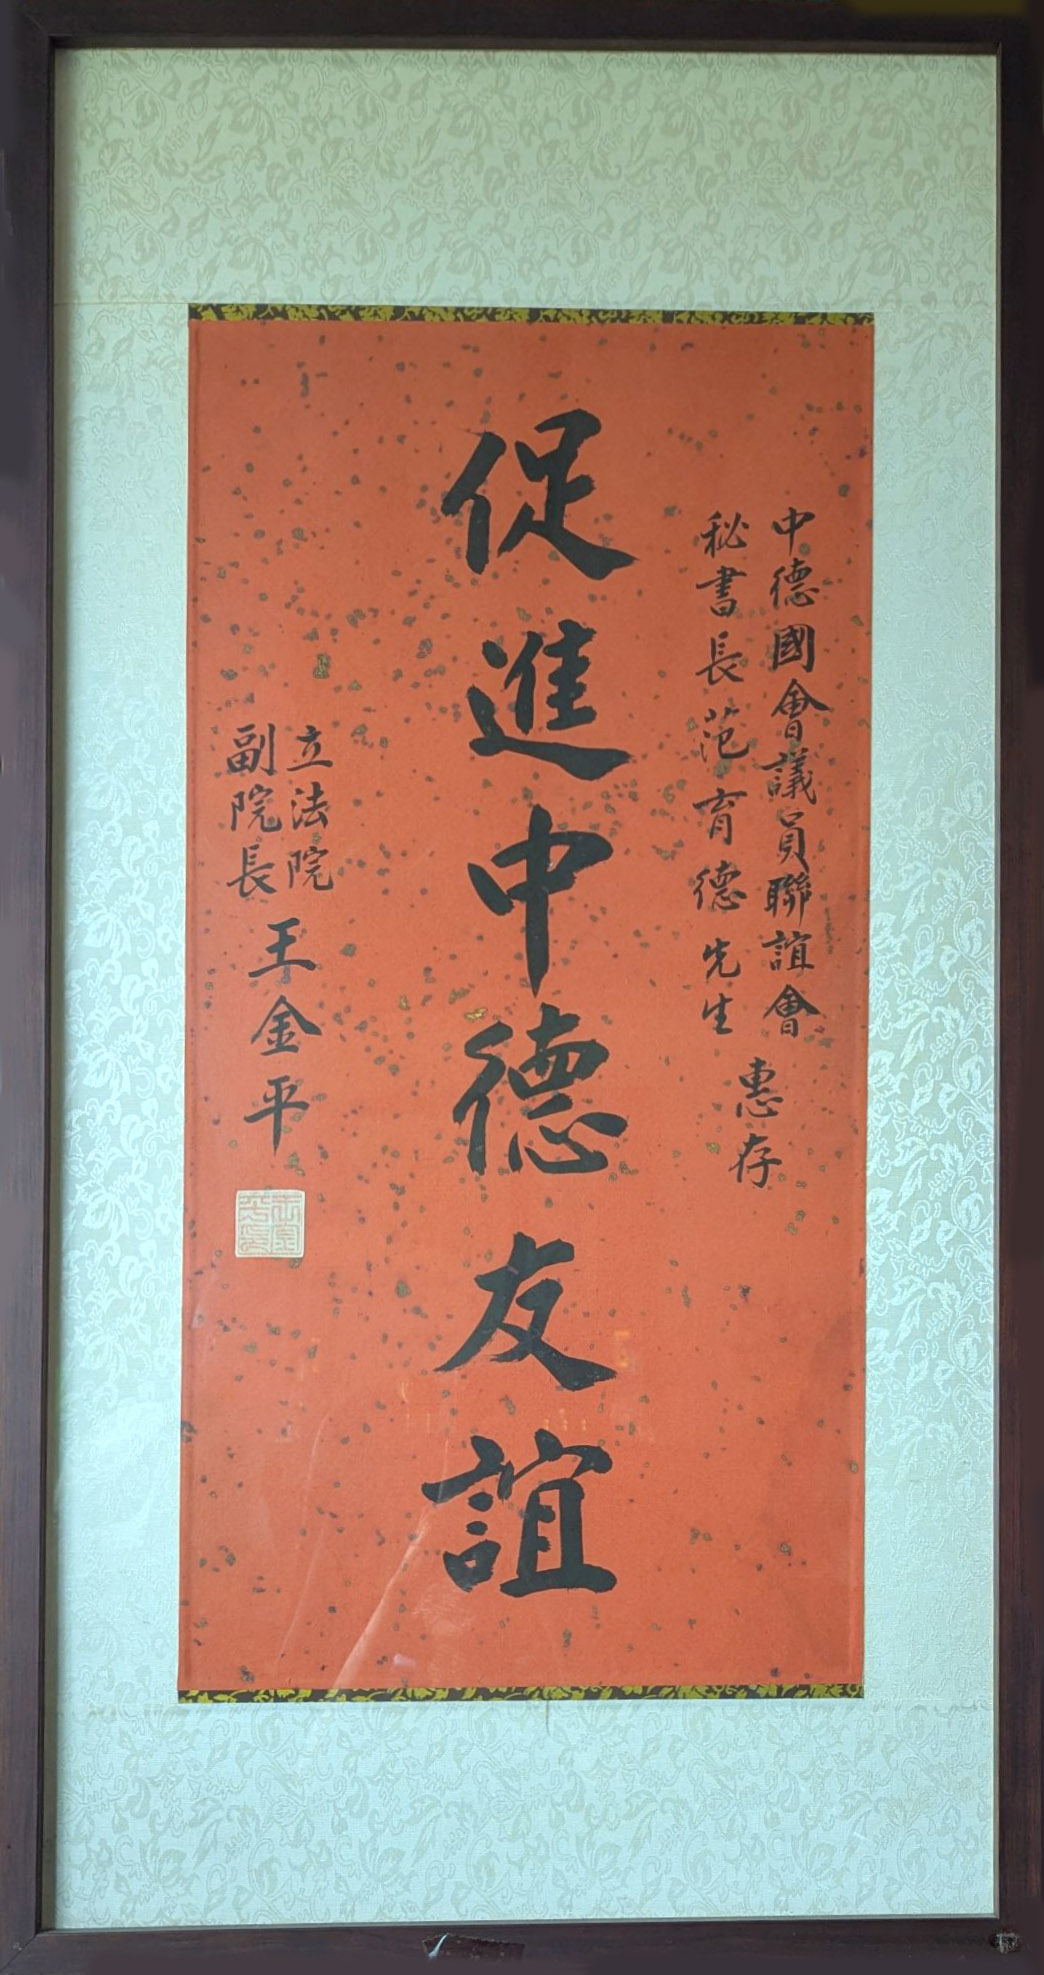 中德國會議員聯誼會
秘書長范育德先生
惠存
促進中德友誼
立法院
副院長
王金平